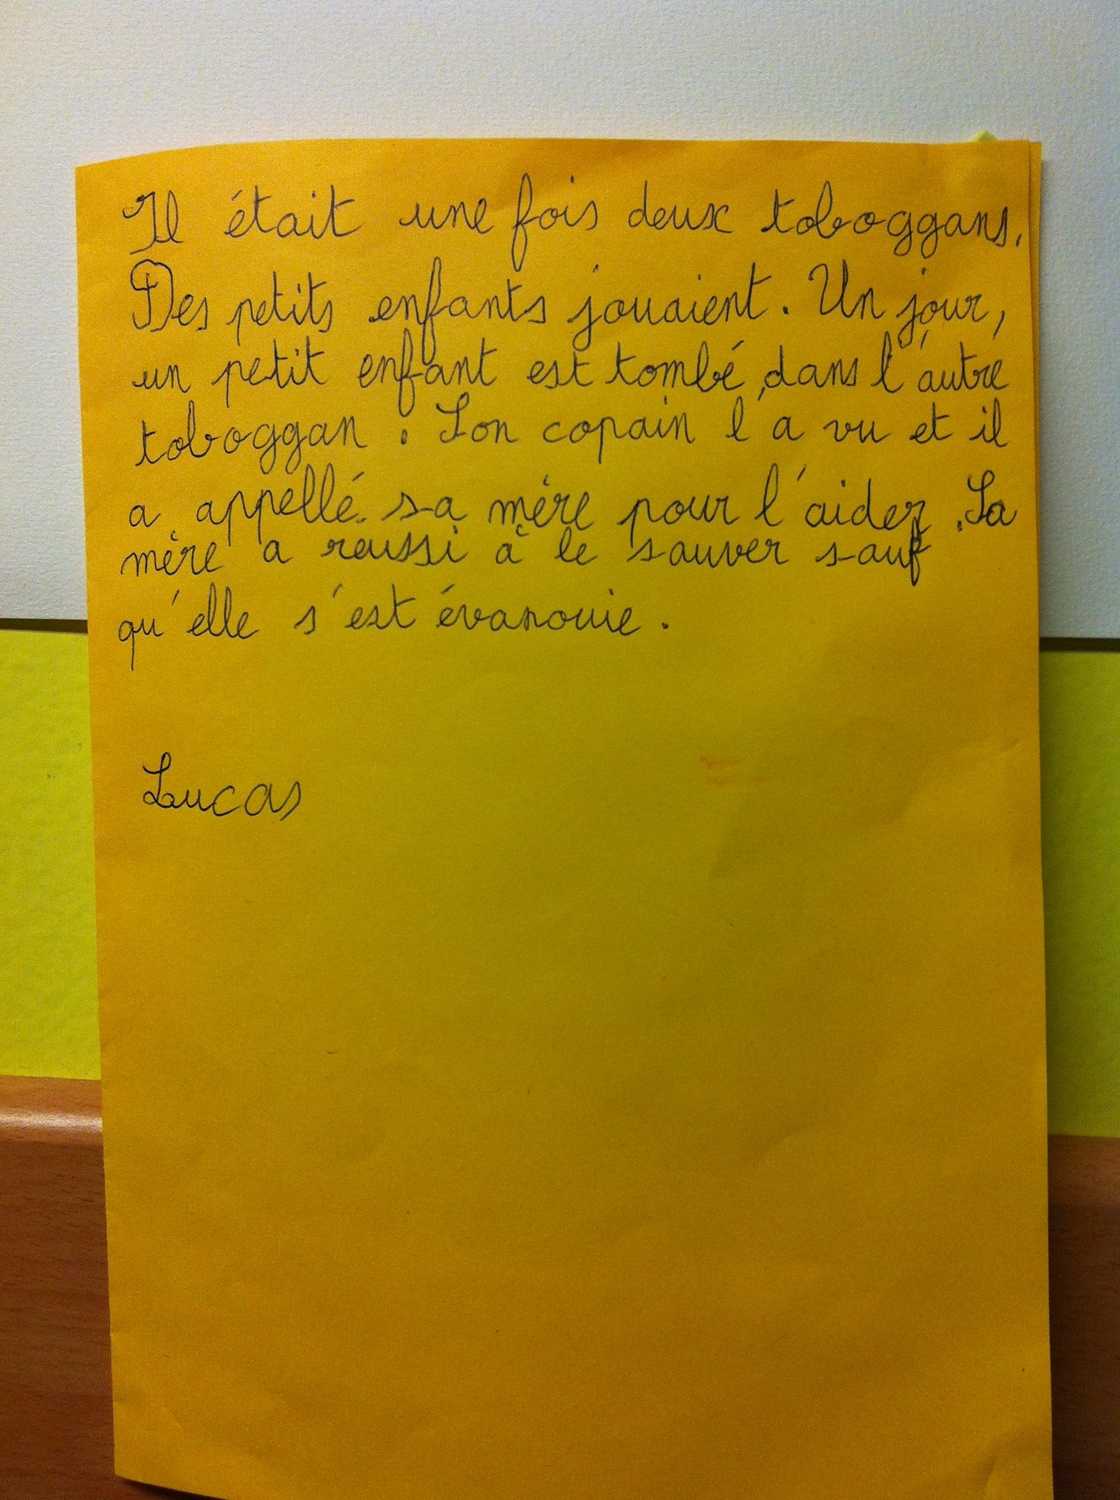 Il était une fois deux toboggans.
Des petits enfants jouaient. Un jour,
un petit enfant est tombé dans l'autre
toboggan. Son copain l'a vu et il
a appellé sa mère pour l'aider. Sa
mère a reussi à le sauver sauf
qu'elle s'est évanouie.
Lucas